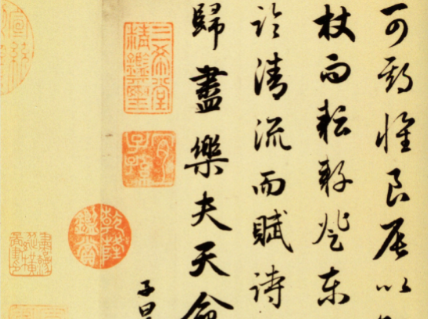 可期懷良辰以
杖而耘耔登東
臨清流而賦詩
歸盡樂夫天命
子昂
三希堂精鑑璽
宜子孫
乾隆鑑賞